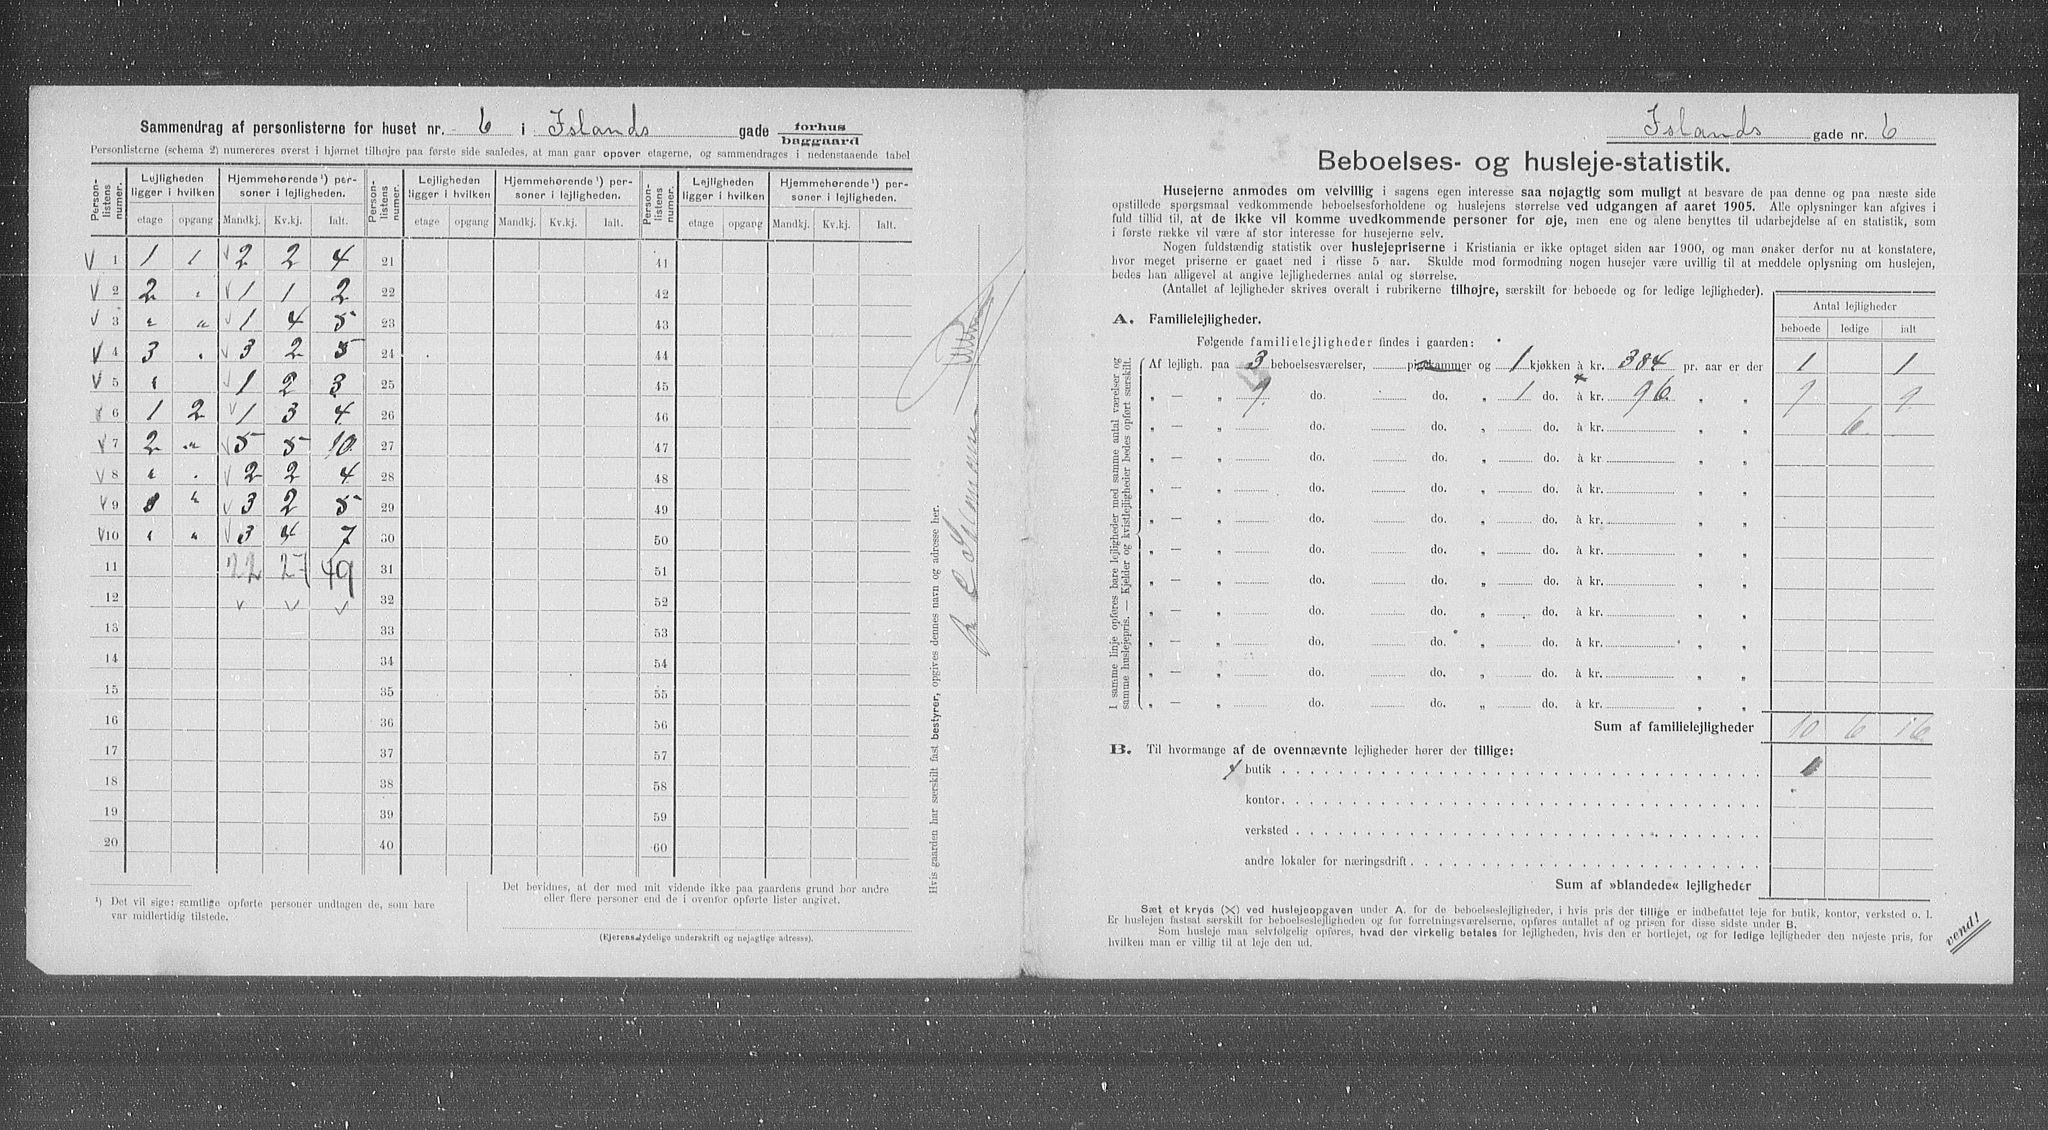 Sammendrag af personlisterne for huset nr. 6 i Islands gade forhus
baggaard
Personlisterne (schema 2) numereres øverst i hjørnet tilhøjre paa første side saaledes, at man gaar opover etagerne, og sammendrages i nedenstaaende tabel
Person-listens numer. Lejligheden ligger i hvilken Hjemmehørende ¹) personer i lejligheden. Person-listens numer. Lejligheden ligger i hvilken Hjemmehørende ¹) personer i lejligheden. Person-listens numer. Lejligheden ligger i hvilken Hjemmehørende ¹) personer i lejligheden.
etage opgang Mandkj. Kv.kj. Ialt. etage opgang Mandkj. Kv.kj. Ialt. etage opgang Mandkj. Kv.kj. Ialt.
V 1 1 1 V 2 2 4 21 41
V 2 2 " V 1 1 2 22 42
V 3 " " V 1 4 5 23 43
V 4 3 " V 3 2 5 24 44
V 5 " V 1 2 3 25 45
V 6 1 2 V 1 3 4 26 46
V 7 2 " V 5 5 10 27 47
V 8 " " V 2 2 4 28 48
V 9 " V 3 2 5 29 49
V 10 " " V 3 4 7 30 50
11 22 27 49 31 51
12 V V V 32 52
13 33 53
14 34 54
15 35 55
16 36 56
17 37 57
18 38 58
19 39 59
20 40 60
¹) Det vil sige: samtlige opførte personer undtagen de, som bare
var midlertidig tilstede.
Det bevidnes, at der med mit vidende ikke paa gaardens grund bor andre
eller flere personer end de i ovenfor opførte lister angivet.
(Ejerens tydelige underskrift og nøjagtige adresse).
Hvis gaarden har særskilt fast bestyrer, opgives dennes navn og adresse her.
Islands gade nr. 6
Beboelses- og husleje-statistik.
Husejerne anmodes om velvillig i sagens egen interesse saa nøjagtig som muligt at besvare de paa denne og paa næste side
opstillede spørgsmaal vedkommende beboelsesforholdene og huslejens størrelse ved udgangen af aaret 1905. Alle oplysninger kan afgives i
fuld tillid til, at de ikke vil komme uvedkommende personer for øje, men ene og alene benyttes til udarbejdelse af en statistik, som
i første række vil være af stor interesse for husejerne selv.
Nogen fuldstændig statistik over huslejepriserne i Kristiania er ikke optaget siden aar 1900, og man ønsker derfor nu at konstatere,
hvor meget priserne er gaaet ned i disse 5 aar. Skulde mod formodning nogen husejer være uvillig til at meddele oplysning om huslejen,
bedes han alligevel at angive lejlighedernes antal og størrelse.
(Antallet af lejligheder skrives overalt i rubrikerne tilhøjre, særskilt for beboede og for ledige lejligheder).
Antal lejligheder
beboede ledige ialt
A. Familielejligheder.
Følgende familielejligheder findes i gaarden:
I samme linje opføres bare lejligheder med samme antal værelser og
samme huslejepris. — Kjelder og kvistlejligheder bedes opført særskilt.
Af lejligh. paa 3 beboelsesværelser, pigekammer og 1 kjøkken à kr. 384 pr. aar er der 1 1
„ — „ 9 do. do. „ 1 do. à kr. 96 „ „ 9 9
„ — „ do. do. „ do. à kr. „ „ 6
„ — „ do. do. „ do. à kr. „ „
„ — „ do. do. „ do. à kr. „ „
„ — „ do. do. „ do. à kr. „ „
„ — „ do. do. „ do. à kr. „ „
„ — „ do. do. „ do. à kr. „ „
„ — „ do. do. „ do. à kr. „ „
„ — „ do. do. „ do. à kr. „ „
„ — „ do. do. „ do. à kr. „ „
„ — „ do. do. „ do. à kr. „ „
Sum af familielejligheder 10 6 16
B. Til hvormange af de ovennævnte lejligheder hører der tillige:
butik
kontor
verksted
andre lokaler for næringsdrift
Sum af »blandede« lejligheder
Sæt et kryds (X) ved huslejeopgaven under A. for de beboelseslejligheder, i hvis pris der tillige er indbefattet leje for butik, kontor, verksted o. l.
Er huslejen fastsat særskilt for beboelseslejligheden og for forretningsværelserne, opføres antallet af og prisen for disse sidste under B.
Som husleje maa selvfølgelig opføres, hvad der virkelig betales for lejligheden, hvis den er bortlejet, og for ledige lejligheder den nøjeste pris, for
hvilken man er villig til at leje den ud.
vend!